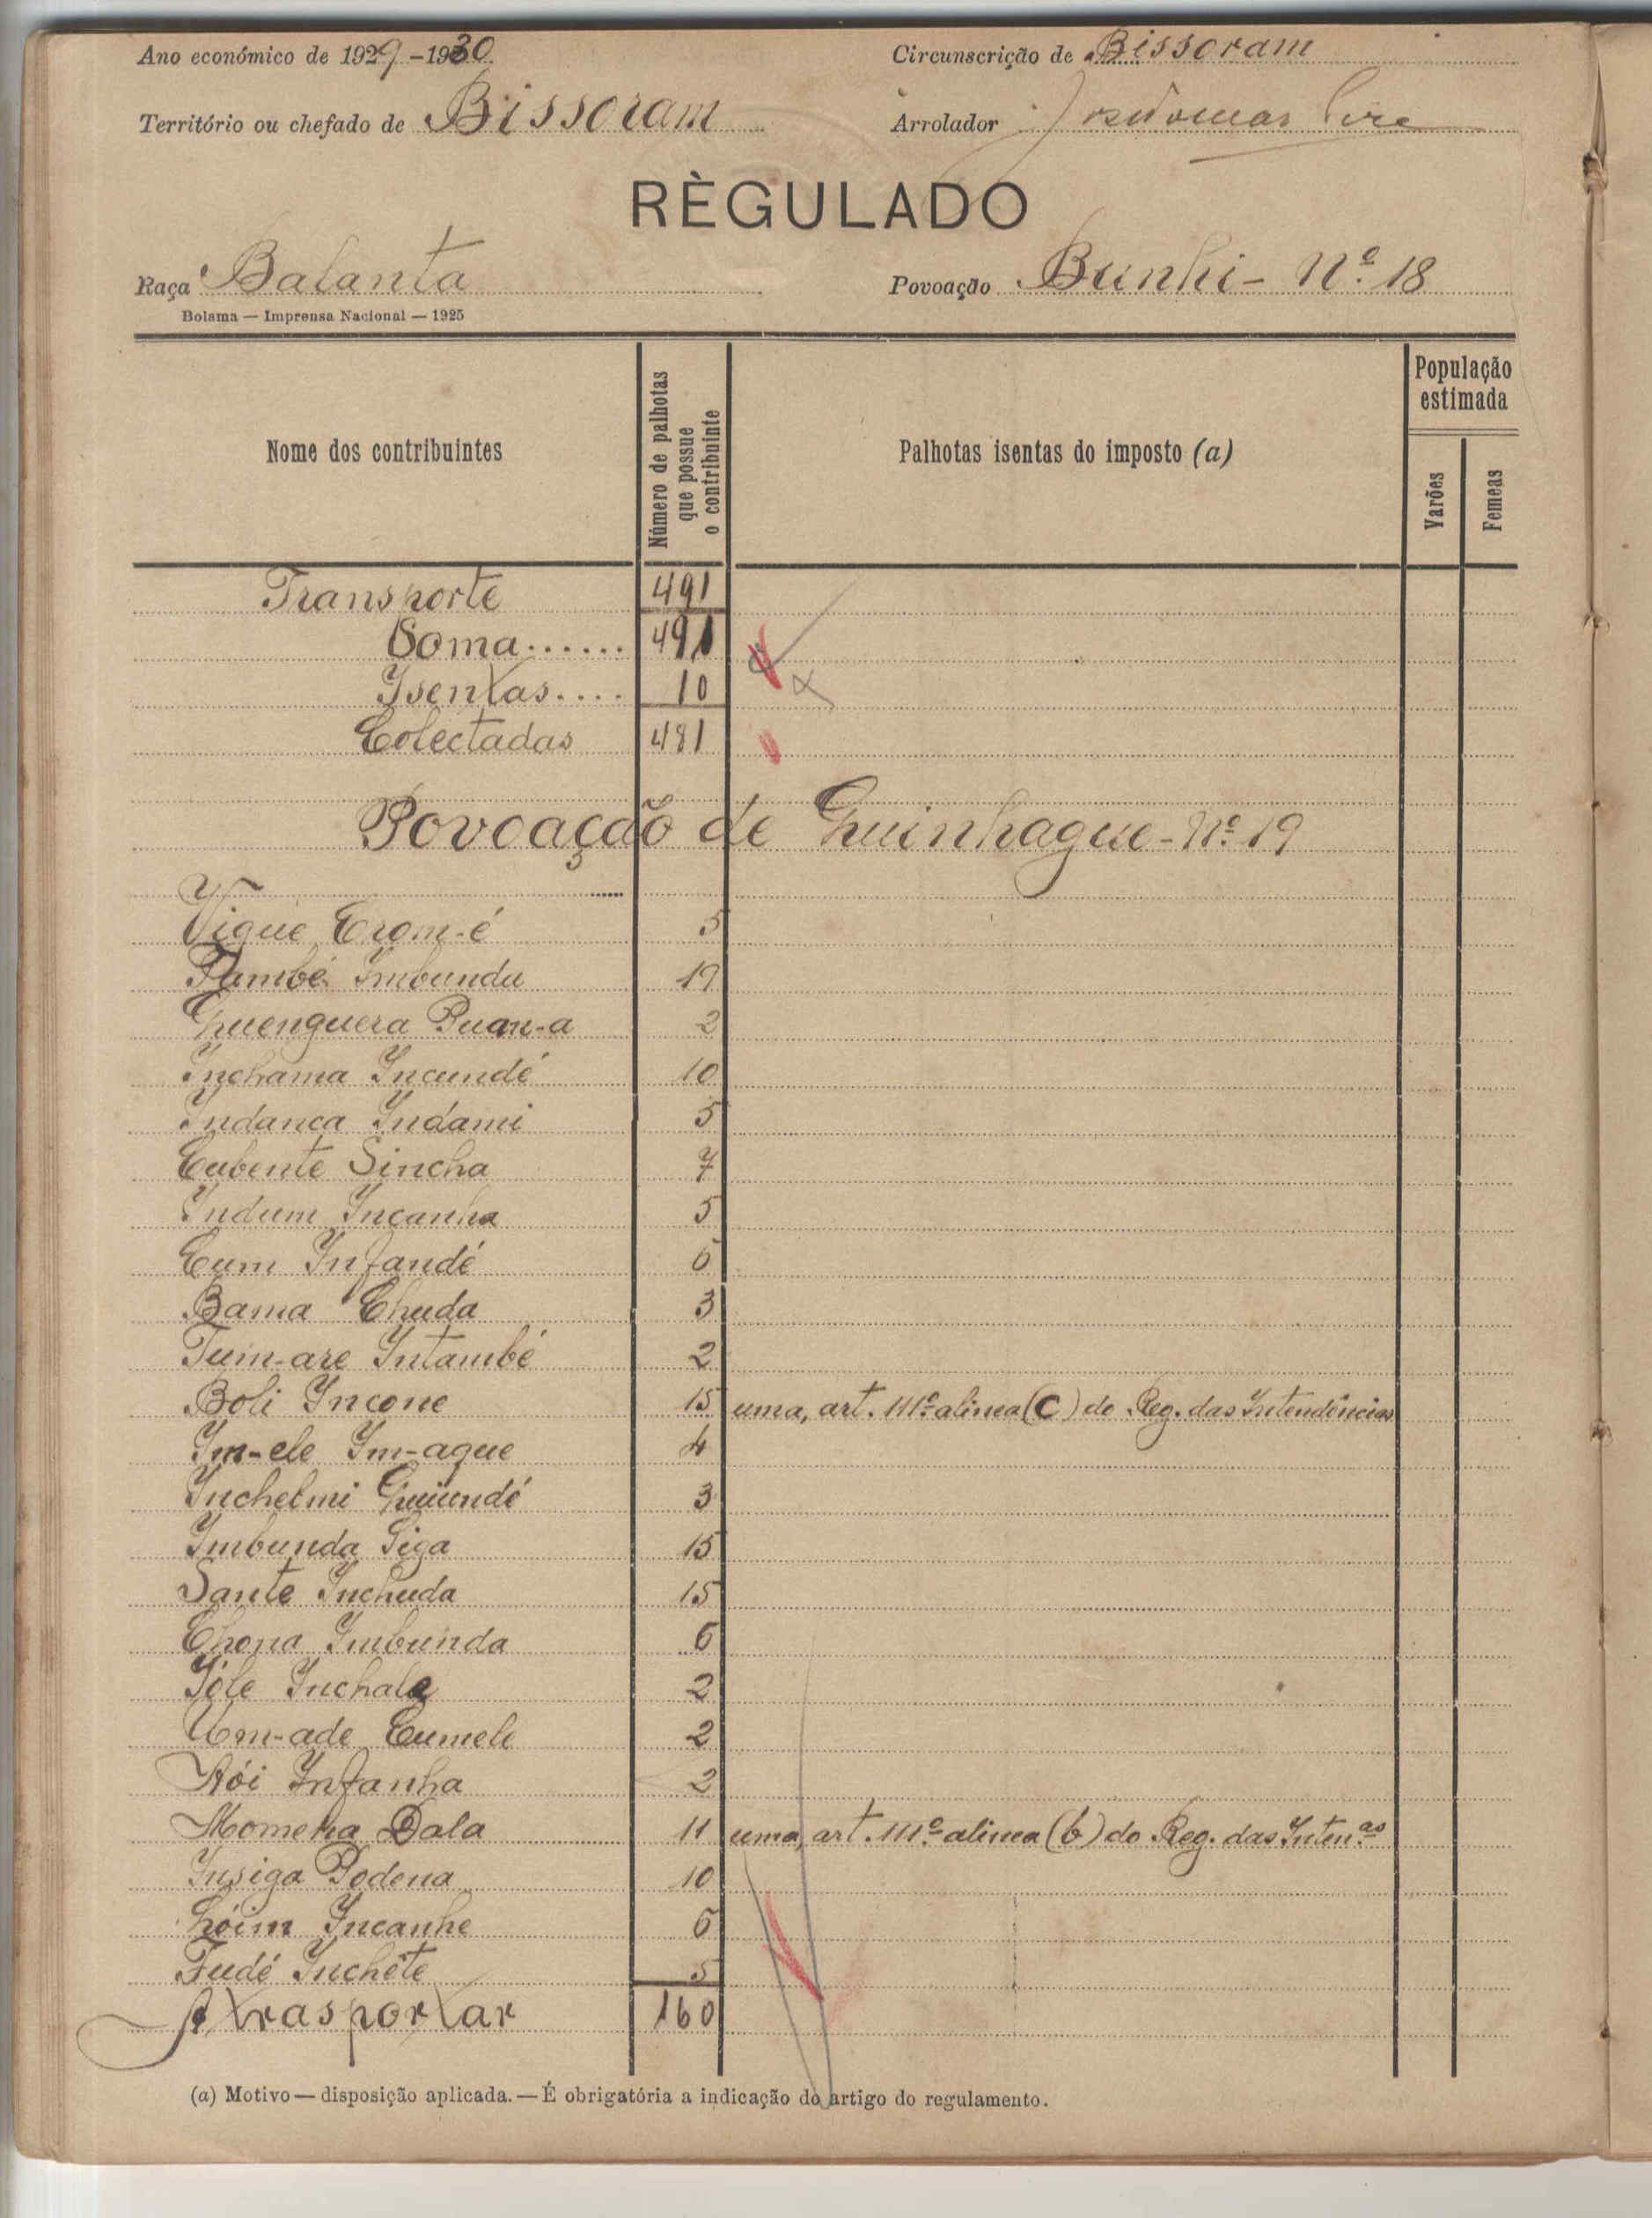 Ano económico de 1929-1930
Circunscrição de Bissoram
Território ou chefado de Bissoram
Arrolador
RÈGULADO
Raça Balanta
Povoação Bunhi - Nº 18
Bolama — Imprensa Nacional — 1925
Nome dos contribuintes
Número de palhotas
que possue
o contribuinte
Palhotas isentas do imposto (a)
População
estimada
Varões
Femeas
Transporte 491
Soma...... 491
Isentas.... 10
Colectadas 481
Povoação de Guinhague - Nº 19
Vigue Crom-é 5
Pambé Imbunda 19
Guenguera Puan-a 2
Inchama Incundé 10
Indanca Indami 5
Cubente Sincha 7
Indum Incanha 5
Cum Infandé 6
Bama Chuda 3
Tum-are Intambé 2
Boli Incone 15 uma, art. 111º alinea (C) do Reg. das Intendências
Im-ele Im-aque 4
Inchelmi Guiundé 3
Imbunda Siga 15
Sante Inchuda 15
Chona Imbunda 6
Jóle Inchala 2
Um-ade Cumele 2
Rói Infanha 2
Momena Dala 11 uma, art. 111º alinea (b) do Reg. das Inten.as
Insiga Podena 10
Lóim Incanhe 6
Fudé Inchête 5
A trasportar 160
(a) Motivo — disposição aplicada. — É obrigatória a indicação do artigo do regulamento.